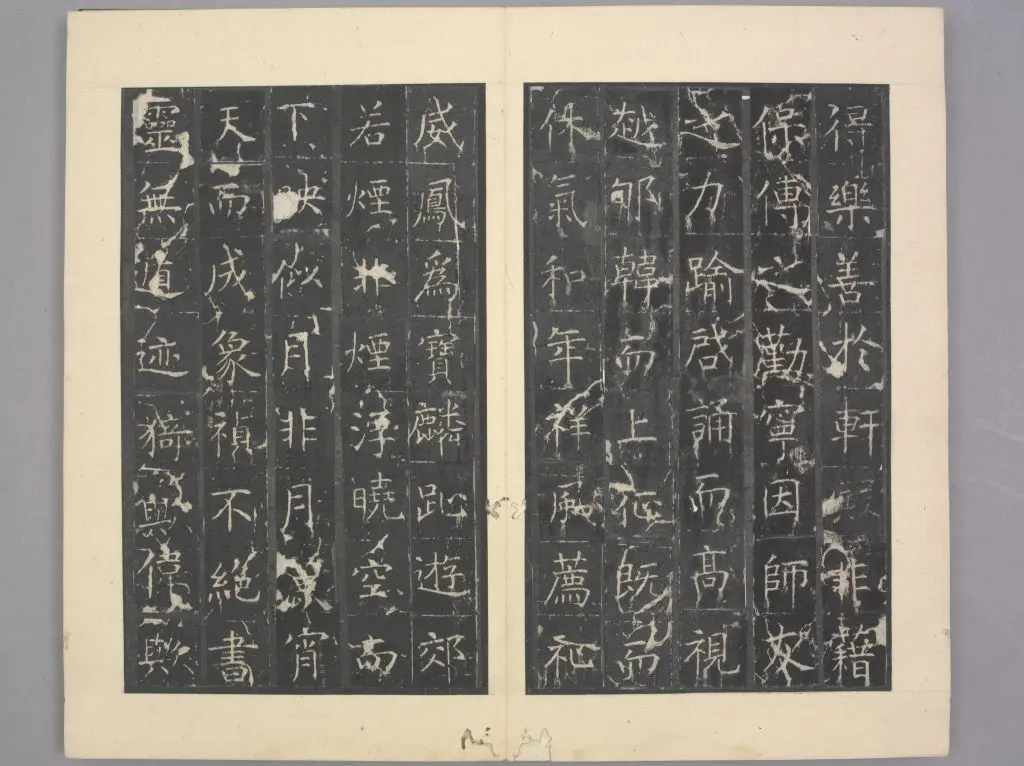 得樂善於軒非藉
保傅之勤寧因師友
之力踰啓誦而高視
越邘韓而上征既而
休氣和年祥風薦祉
威鳳爲寶麟趾遊郊
若煙非煙浮曉空而
下映似月非月宵
天而成象禎不絕書
靈無道迹猗歟偉歟